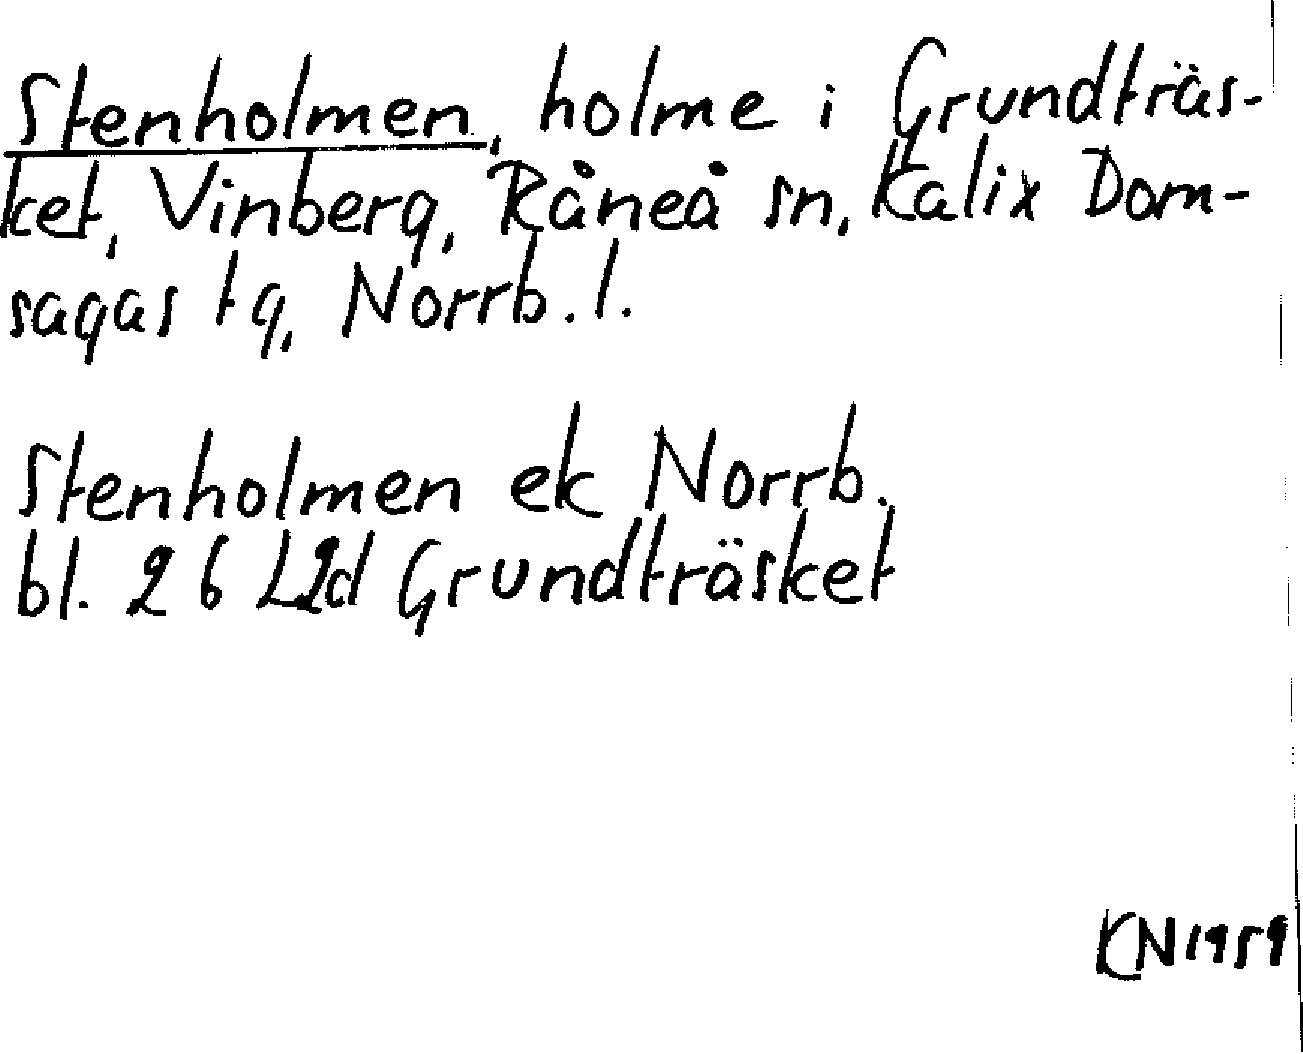 Stenholmen, holme i Grundträs-
ket, Vinberg, Råneå sn, Kalix Dom-
sagas tg, Norrb. l.
Stenholmen ek Norrb.
bl. 26 L2d Grundträsket
KN 1959